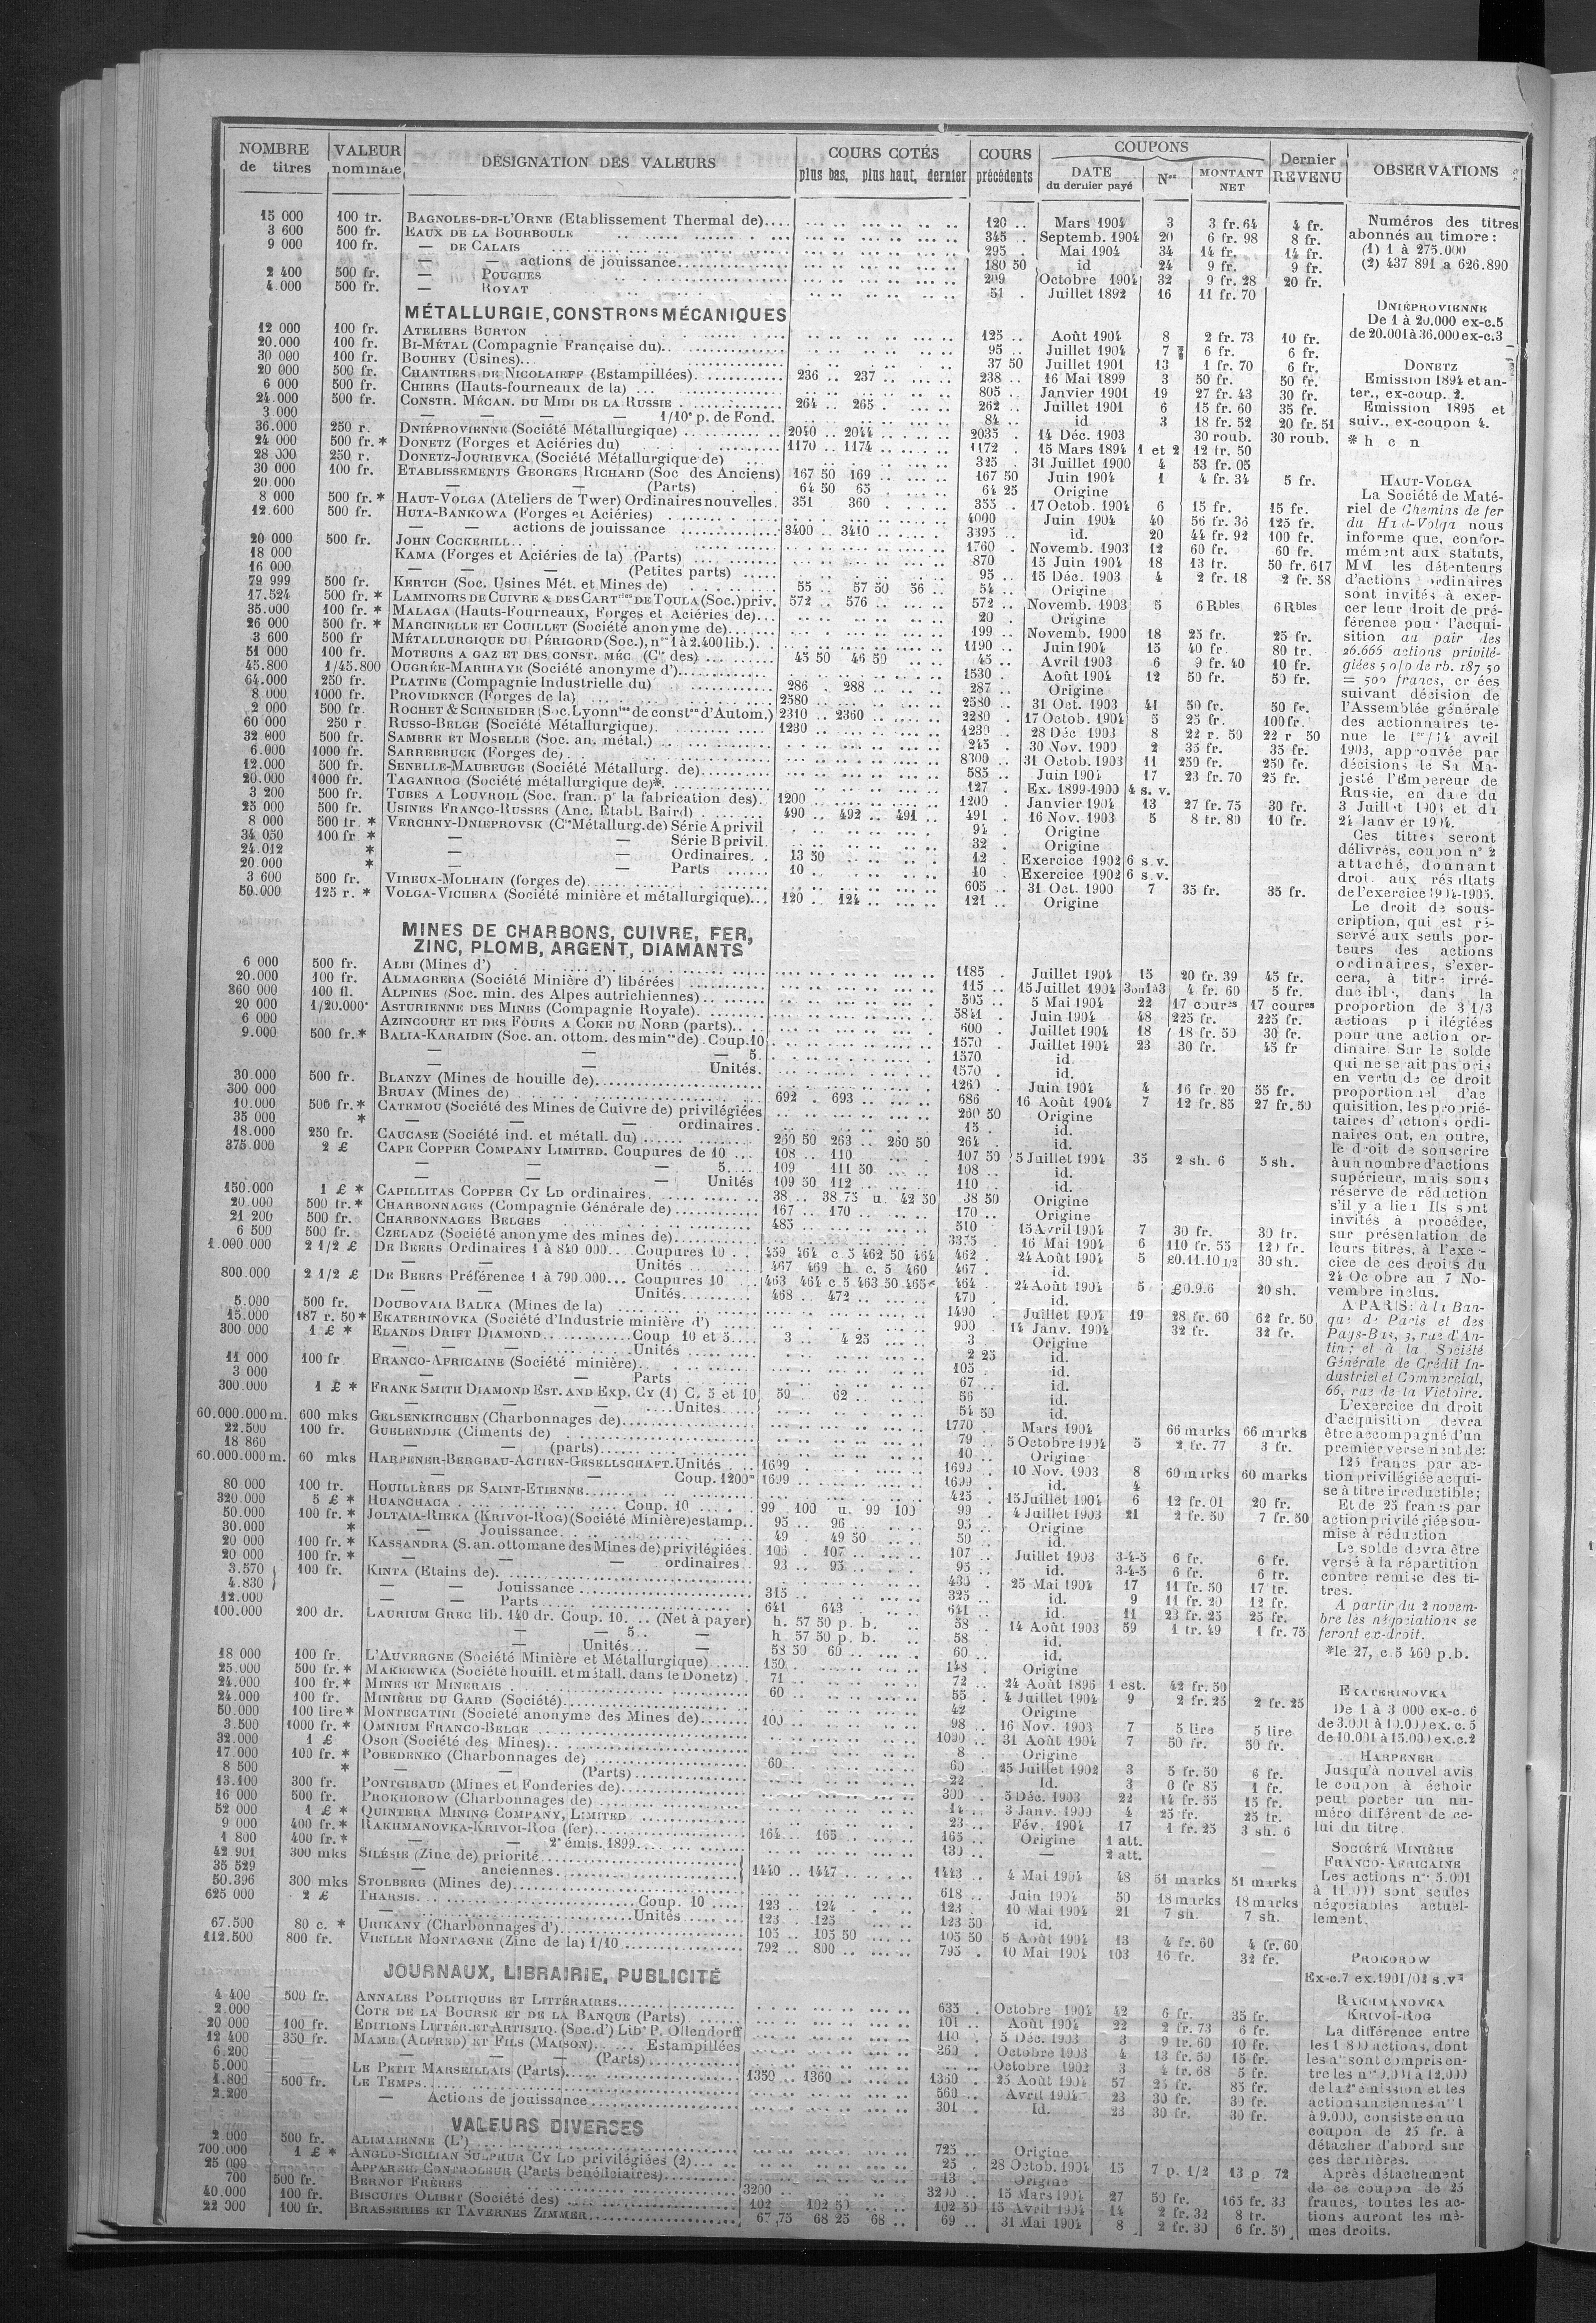 NOMBRE de titres | VALEUR nominale | DÉSIGNATION DES VALEURS | COURS COTÉS plus bas, plus haut, dernier | COURS précédents | COUPONS DATE du dernier payé | Nos | MONTANT NET | Dernier REVENU | OBSERVATIONS
15 000 100 fr. BAGNOLES-DE-L'ORNE (Etablissement Thermal de).... 120 .. Mars 1904 3 3 fr. 64 4 fr.
3 600 500 fr. EAUX DE LA BOURBOULE 345 .. Septemb. 1904 20 6 fr. 98 8 fr.
9 000 100 fr. — DE CALAIS 295 . Mai 1904 34 14 fr. 14 fr.
— — actions de jouissance 180 50 id 24 9 fr. 9 fr.
2 400 500 fr. — POUGUES 209 Octobre 1904 32 9 fr. 28 20 fr.
4.000 500 fr. — ROYAT 51 . Juillet 1892 16 11 fr. 70
MÉTALLURGIE, CONSTRons MÉCANIQUES
12 000 100 fr. ATELIERS BURTON 125 .. Août 1904 8 2 fr. 73 10 fr.
20.000 100 fr. BI-MÉTAL (Compagnie Française du).. 95 .. Juillet 1904 7 6 fr. 6 fr.
30 000 100 fr. BOUHEY (Usines)... 37 50 Juillet 1901 13 1 fr. 70 6 fr.
20 000 500 fr. CHANTIERS DE NICOLAIEFF (Estampillées). 236 .. 237 .. 238 .. 16 Mai 1899 3 50 fr. 50 fr.
6 000 500 fr. CHIERS (Hauts-fourneaux de la) 805 .. Janvier 1901 19 27 fr. 43 30 fr.
24.000 500 fr. CONSTR. MÉCAN. DU MIDI DE LA RUSSIE 264 .. 265 . 262 .. Juillet 1901 6 15 fr. 60 35 fr.
3 000 — — — — 1/10e p. de Fond. 84 .. id 3 18 fr. 52 20 fr. 51
36.000 250 r. DNIÉPROVIENNE (Société Métallurgique) 2040 .. 2044 .. 2035 . 14 Déc. 1903 30 roub. 30 roub.
24 000 500 fr. * DONETZ (Forges et Aciéries du) 1170 .. 1174 .. 1172 . 15 Mars 1894 1 et 2 12 fr. 50
28 000 250 r. DONETZ-JOURIEVKA (Société Métallurgique de) 325 . 31 Juillet 1900 4 53 fr. 05
30 000 100 fr. ETABLISSEMENTS GEORGES RICHARD (Soc des Anciens) 167 50 169 .. 167 50 Juin 1904 1 4 fr. 34 5 fr.
20.000 — — (Parts) 64 50 65 64 25 Origine
8 000 500 fr. * HAUT-VOLGA (Ateliers de Twer) Ordinaires nouvelles. 351 360 . 355 . 17 Octob. 1904 6 15 fr. 15 fr.
12.600 500 fr. HUTA-BANKOWA (Forges et Aciéries) 4000 Juin 1904 40 56 fr. 36 125 fr.
— — actions de jouissance 3400 .. 3410 .. 3395 .. id. 20 44 fr. 92 100 fr.
20 000 500 fr. JOHN COCKERILL.. 1760 . Novemb. 1903 12 60 fr. 60 fr.
18 000 KAMA (Forges et Aciéries de la) (Parts) 870 15 Juin 1904 18 13 fr. 50 fr. 617
16 000 — — — (Petites parts) 95 .. 15 Déc. 1903 4 2 fr. 18 2 fr. 58
79 999 500 fr. KERTCH (Soc. Usines Mét. et Mines de) 55 .. 57 50 56 .. 54 .. Origine
17.524 500 fr. * LAMINOIRS DE CUIVRE & DES CARTries DE TOULA (Soc.) priv. 572 .. 576 .. 572 .. Novemb. 1903 5 6 Rbles 6 Rbles
35.000 100 fr. * MALAGA (Hauts-Fourneaux, Forges et Aciéries de)... 20 . Origine
26 000 500 fr. * MARCINELLE ET COUILLET (Société anonyme de) 199 .. Novemb. 1900 18 25 fr. 25 fr.
3 600 500 fr MÉTALLURGIQUE DU PÉRIGORD (Soc.), nos 1 à 2.400 lib.). 1190 .. Juin 1904 15 40 fr. 80 fr.
51 000 100 fr. MOTEURS A GAZ ET DES CONST. MÉC. (Cie des) 45 50 46 50 45 .. Avril 1903 6 9 fr. 40 10 fr.
45.800 1/45.800 OUGRÉE-MARIHAYE (Société anonyme d') 1530 . Août 1904 12 50 fr. 50 fr.
64.000 250 fr. PLATINE (Compagnie Industrielle du) 286 . 288 .. 287 .. Origine
8 000 1000 fr. PROVIDENCE (Forges de la) 2580 .. 2580 .. 31 Oct. 1903 41 50 fr. 50 fr.
2 000 500 fr. ROCHET & SCHNEIDER (Soc. Lyonnise de constons d'Autom.) 2310 .. 2360 2280 . 17 Octob. 1904 5 25 fr. 100 fr.
60 000 250 r. RUSSO-BELGE (Société Métallurgique) 1230 .. 1230 .. 28 Déc 1903 8 22 r. 50 22 r 50
32 000 500 fr. SAMBRE ET MOSELLE (Soc. an. métal.) 245 . 30 Nov. 1900 2 35 fr. 35 fr.
6.000 1000 fr. SARREBRUCK (Forges de) 8300 .. 31 Octob. 1903 11 250 fr. 250 fr.
12.000 500 fr. SENELLE-MAUBEUGE (Société Métallurg. de) 585 .. Juin 1904 17 23 fr. 70 25 fr.
20.000 1000 fr. TAGANROG (Société métallurgique de)*. 127 . Ex. 1899-1900 4 s. v.
3 200 500 fr. TUBES A LOUVROIL (Soc. fran. pr la fabrication des). 1200 1200 Janvier 1904 13 27 fr. 75 30 fr.
25 000 500 fr. USINES FRANCO-RUSSES (Anc. Etabl. Baird) 490 .. 492 .. 491 .. 491 . 16 Nov. 1903 5 8 fr. 80 10 fr.
8 000 500 fr. * VERCHNY-DNIEPROVSK (Cie Métallurg. de) Série A privil 94 . Origine
34 050 100 fr * — — Série B privil. 32 . Origine
24.012 * — — Ordinaires. 13 50 12 . Exercice 1902 6 s. v.
20.000 * — — Parts 10 10 . Exercice 1902 6 s. v.
3 600 500 fr. VIREUX-MOLHAIN (forges de) 605 .. 31 Oct. 1900 7 35 fr. 35 fr.
50.000 125 r. * VOLGA-VICHERA (Société minière et métallurgique)... 120 . 124 .. 121 .. Origine
MINES DE CHARBONS, CUIVRE, FER,
ZINC, PLOMB, ARGENT, DIAMANTS
6 000 500 fr. ALBI (Mines d') 1185 Juillet 1904 15 20 fr. 39 45 fr.
20.000 100 fr. ALMAGRERA (Société Minière d') libérées 115 .. 15 Juillet 1904 3 ou 1 à 3 4 fr. 60 5 fr.
360 000 100 fl. ALPINES (Soc. min. des Alpes autrichiennes) 505 .. 5 Mai 1904 22 17 coures 17 coures
20 000 1/20.000e ASTURIENNE DES MINES (Compagnie Royale). 5841 . Juin 1904 48 225 fr. 225 fr.
6 000 AZINCOURT ET DES FOURS A COKE DU NORD (parts) 600 . Juillet 1904 18 18 fr. 50 30 fr.
9.000 500 fr. * BALIA-KARAIDIN (Soc. an. ottom. des mines de). Coup. 10 1570 . Juillet 1904 23 30 fr. 45 fr
— — — 5. 1570 id.
— — Unités. 1570 . id.
30.000 500 fr. BLANZY (Mines de houille de) 1260 . Juin 1904 4 16 fr. 20 55 fr.
300 000 BRUAY (Mines de) 692 . 693 .. 686 16 Août 1904 7 12 fr. 85 27 fr. 50
10.000 500 fr. * CATEMOU (Société des Mines de Cuivre de) privilégiées 260 50 Origine
35 000 * — — — ordinaires. 15 . id.
18.000 250 fr. CAUCASE (Société ind. et métall. du) 260 50 263 .. 260 50 264 . id.
375.000 2 £ CAPE COPPER COMPANY LIMITED. Coupures de 10 108 .. 110 107 50 5 Juillet 1904 35 2 sh. 6 5 sh.
— — — 5 109 111 50 108 .. id.
— — — Unités 109 50 112 110 .. id.
150.000 1 £ * CAPILLITAS COPPER CY LD ordinaires. 38 .. 38.75 u. 42 50 38 50 Origine
20 000 500 fr. * CHARBONNAGES (Compagnie Générale de) 167 .. 170 170 .. Origine
21 200 500 fr. CHARBONNAGES BELGES 485 510 15 Avril 1904 7 30 fr. 30 fr.
6 500 500 fr. CZELADZ (Société anonyme des mines de) 3375 16 Mai 1904 6 110 fr. 55 120 fr.
1.000.000 2 1/2 £ DE BEERS Ordinaires 1 à 840 000... Coupures 10 459 464 c. 5 462 50 464 462 . 24 Août 1904 5 £0.11.10 1/2 30 sh.
— — Unités 467 469 h. c. 5 460 467 . id.
800.000 2 1/2 £ DE BEERS Préférence 1 à 790.000... Coupures 10 463 464 c. 5 463.50 465* 464 . 24 Août 1904 5 £0.9.6 20 sh.
— — Unités 468 .. 472 470 . id.
5.000 500 fr. DOUBOVAIA BALKA (Mines de la) 1490 Juillet 1904 19 28 fr. 60 62 fr. 50
15.000 187 r. 50 * EKATERINOVKA (Société d'Industrie minière d') 900 14 Janv. 1904 32 fr. 32 fr.
300 000 1 £ * ELANDS DRIFT DIAMOND Coup 10 et 5 3 .. 4 25 3 Origine
— — Unités 2 25 id.
11 000 100 fr FRANCO-AFRICAINE (Société minière). 105 . id.
3 000 — — Parts 67 .. id.
300.000 1 £ * FRANK SMITH DIAMOND EST. AND EXP. CY (1) C. 5 et 10 59 62 .. 56 id.
— — Unités 54 50 id.
60.000.000 m. 600 mks GELSENKIRCHEN (Charbonnages de) 1770 Mars 1904 66 marks 66 marks
22.500 100 fr. GUELENDJIK (Ciments de) 79 .. 5 Octobre 1904 5 2 fr. 77 3 fr.
18 860 — — (parts) 10 .. Origine
60.000.000 m. 60 mks HARPENER-BERGBAU-ACTIEN-GESELLSCHAFT. Unités 1699 1690 . 10 Nov. 1903 8 60 marks 60 marks
— — Coup. 1200m 1699 1699 . id. 4
80 000 100 fr. HOUILLÈRES DE SAINT-ETIENNE 425 . 15 Juillet 1904 6 12 fr. 01 20 fr.
320.000 5 £ * HUANCHACA Coup. 10 99 100 u. 99 100 99 . 4 Juillet 1903 21 2 fr. 50 7 fr. 50
50.000 100 fr. * JOLTAIA-RIEKA (KRIVOI-ROG) (Société Minière) estamp.. 95 96 95 .. Origine
30.000 * — Jouissance 49 49 50 50 .. id.
20 000 100 fr. * KASSANDRA (S. an. ottomane des Mines de) privilégiées. 105 107 107 . Juillet 1903 3-4-5 6 fr. 6 fr.
20 000 100 fr. * — — — ordinaires. 93 .. 95 95 .. id. 3-4-5 6 fr. 6 fr.
3.570 100 fr. KINTA (Etains de). 435 . 25 Mai 1904 17 11 fr. 50 17 fr.
4.830 — — Jouissance 315 325 . id. 9 11 fr. 20 12 fr.
12.000 — — Parts 641 643 641 .. id. 11 23 fr. 25 25 fr.
100.000 200 dr. LAURIUM GREC lib. 140 dr. Coup. 10. .. (Net à payer) h. 57 50 p. b. 58 14 Août 1903 59 1 fr. 49 1 fr. 75
— — 5.. — h. 57 50 p. b. 58 id.
— Unités.. — 58 50 60 60 .. id.
18 000 100 fr. L'AUVERGNE (Société Minière et Métallurgique) 150 148 . Origine
25.000 500 fr. * MAKEEWKA (Société houill. et métall. dans le Donetz) 71 72 .. 24 Août 1896 1 est. 42 fr. 50
24.000 100 fr. * MINES ET MINERAIS 60 55 . 4 Juillet 1904 9 2 fr. 25 2 fr. 25
24.000 100 fr. MINIÈRE DU GARD (Société) 42 Origine
50.000 100 lire * MONTECATINI (Société anonyme des Mines de) 100 98 .. 16 Nov. 1903 7 5 lire 5 lire
3.500 1000 fr. * OMNIUM FRANCO-BELGE 1090 .. 31 Août 1904 7 50 fr. 50 fr.
32.000 1 £ OSOR (Société des Mines) 8 . Origine
17.000 100 fr. * POBEDENKO (Charbonnages de) 60 60 .. 25 Juillet 1902 3 5 fr. 50 6 fr.
8 500 * — — (Parts) 22 Id. 3 0 fr 85 1 fr.
13.100 300 fr. PONTGIBAUD (Mines et Fonderies de) 300 . 5 Déc. 1903 22 14 fr. 55 15 fr.
16 000 500 fr. PROKHOROW (Charbonnages de) 14 .. 3 Janv. 1900 4 25 fr. 25 fr.
52 000 1 £ * QUINTERA MINING COMPANY, LIMITED 23 .. Fév. 1904 17 1 fr. 25 3 sh. 6
9 000 400 fr. * RAKHMANOVKA-KRIVOI-ROG (fer) 164 .. 165 165 .. Origine 1 att.
1 800 400 fr. * — — 2e émis. 1899 130 .. — 2 att.
42 901 300 mks SILÉSIE (Zinc de) priorité
35 529 — anciennes 1440 .. 1447 .. 1443 4 Mai 1904 48 51 marks 51 marks
50.396 300 mks STOLBERG (Mines de) 618 . Juin 1904 50 18 marks 18 marks
625 000 2 £ THARSIS. Coup. 10 123 .. 124 123 . 10 Mai 1904 21 7 sh. 7 sh.
— Unités 123 .. 125 123 50 id.
67.500 80 c. * URIKANY (Charbonnages d') 105 .. 105 50 105 50 5 Août 1904 13 4 fr. 60 4 fr. 60
112.500 800 fr. VIEILLE MONTAGNE (Zinc de la) 1/10 792 .. 800 795 . 10 Mai 1904 103 16 fr. 32 fr.
JOURNAUX, LIBRAIRIE, PUBLICITÉ
4 400 500 fr. ANNALES POLITIQUES ET LITTÉRAIRES 635 . Octobre 1904 42 6 fr. 35 fr.
2.000 COTE DE LA BOURSE ET DE LA BANQUE (Parts) 101 .. Août 1904 22 2 fr. 73 6 fr.
20 000 100 fr. EDITIONS LITTÉR. ET ARTISTIQ. (Soc. d') Libie P. Ollendorff 110 . 5 Déc. 1903 3 9 fr. 60 10 fr.
12 400 350 fr. MAME (ALFRED) ET FILS (MAISON) Estampillées 360 . Octobre 1903 4 13 fr. 50 15 fr.
6.200 — — — (Parts) Octobre 1902 3 4 fr. 68 5 fr.
5.000 LE PETIT MARSEILLAIS (Parts) 1350 .. 1360 1360 .. 25 Août 1904 57 25 fr. 85 fr.
1.800 500 fr. LE TEMPS 560 .. Avril 1904 23 30 fr. 30 fr.
2.200 — Actions de jouissance 301 . Id. 23 30 fr. 30 fr.
VALEURS DIVERSES
2 000 500 fr. ALIMAIENNE (L') 725 .. Origine
700.000 1 £ * ANGLO-SICILIAN SULPHUR CY LD privilégiées (2) 25 . 28 Octob. 1904 15 7 p. 1/2 13 p 72
25 000 APPAREIL CONTROLEUR (Parts bénéficiaires) 13 . Origine
700 500 fr. BERNOT FRÈRES 3200 3200 .. 15 Mars 1904 27 50 fr. 165 fr. 33
40.000 100 fr. BISCUITS OLIBET (Société des) 102 102 50 102 50 15 Avril 1904 14 2 fr. 32 8 fr.
22 000 100 fr. BRASSERIES ET TAVERNES ZIMMER 67,75 68 25 68 .. 69 .. 31 Mai 1904 8 2 fr. 30 6 fr. 50
Numéros des titres
abonnés au timbre :
(1) 1 à 275.000
(2) 437 891 a 626.890
DNIÉPROVIENNE
De 1 à 20.000 ex-c.5
de 20.001 à 36.000 ex-c.3
DONETZ
Emission 1894 et an-
ter., ex-coup. 2.
Emission 1895 et
suiv., ex-coupon 4.
* h c n
HAUT-VOLGA
La Société de Maté-
riel de Chemins de fer
du Haut-Volga nous
informe que, confor-
mément aux statuts,
MM les détenteurs
d'actions ordinaires
sont invités à exer-
cer leur droit de pré-
férence pour l'acqui-
sition au pair des
26.666 actions privilé-
giées 5 o/o de rb. 187 50
= 500 francs, créées
suivant décision de
l'Assemblée générale
des actionnaires te-
nue le 1er/14 avril
1903, approuvée par
décisions de Sa Ma-
jesté l'Empereur de
Russie, en date du
3 Juillet 1904 et du
24 Janvier 1904.
Ces titres seront
délivrés, coupon n° 2
attaché, donnant
droit aux résultats
de l'exercice 1904-1905.
Le droit de sous-
cription, qui est ré-
servé aux seuls por-
teurs des actions
ordinaires, s'exer-
cera, à titre irré-
ductible, dans la
proportion de 3 1/3
actions privilégiées
pour une action or-
dinaire. Sur le solde
qui ne serait pas pris
en vertu de ce droit
proportionnel d'ac
quisition, les proprié-
taires d'actions ordi-
naires ont, en outre,
le droit de souscrire
à un nombre d'actions
supérieur, mais sous
réserve de réduction
s'il y a lieu Ils sont
invités à procéder,
sur présentation de
leurs titres, à l'exer-
cice de ces droits du
24 Octobre au 7 No-
vembre inclus.
A PARIS: à la Ban-
que de Paris et des
Pays-Bas, 3, rue d'An-
tin; et à la Société
Générale de Crédit In-
dustriel et Commercial,
66, rue de la Victoire.
L'exercice du droit
d'acquisition devra
être accompagné d'un
premier versement de:
125 francs par ac-
tion privilégiée acqui-
se à titre irreductible;
Et de 25 francs par
action privilégiée sou-
mise à réduction
Le solde devra être
versé à la répartition
contre remise des ti-
tres.
A partir du 2 novem-
bre les négociations se
feront ex-droit.
*le 27, c. 5 460 p.b.
EKATERINOVKA
De 1 à 3 000 ex-c. 6
de 3.001 à 10.000 ex. c. 5
de 10.001 à 15.000 ex. c. 2
HARPENER
Jusqu'à nouvel avis
le coupon à échoir
peut porter un nu-
méro différent de ce-
lui du titre.
SOCIÉTÉ MINIÈRE
FRANCO-AFRICAINE
Les actions nos 5.001
à 11.000 sont seules
négociables actuel-
lement.
PROKOROW
Ex-c.7 ex. 1901/02 s. v
RAKHMANOVKA
KRIVOI-ROG
La différence entre
les 1 800 actions, dont
les nos sont compris en-
tre les nos 9.001 à 12.000
de la 2e émission et les
actions anciennes nos 1
à 9.000, consiste en un
coupon de 25 fr. à
détacher d'abord sur
ces dernières.
Après détachement
de ce coupon de 25
francs, toutes les ac-
tions auront les mê-
mes droits.